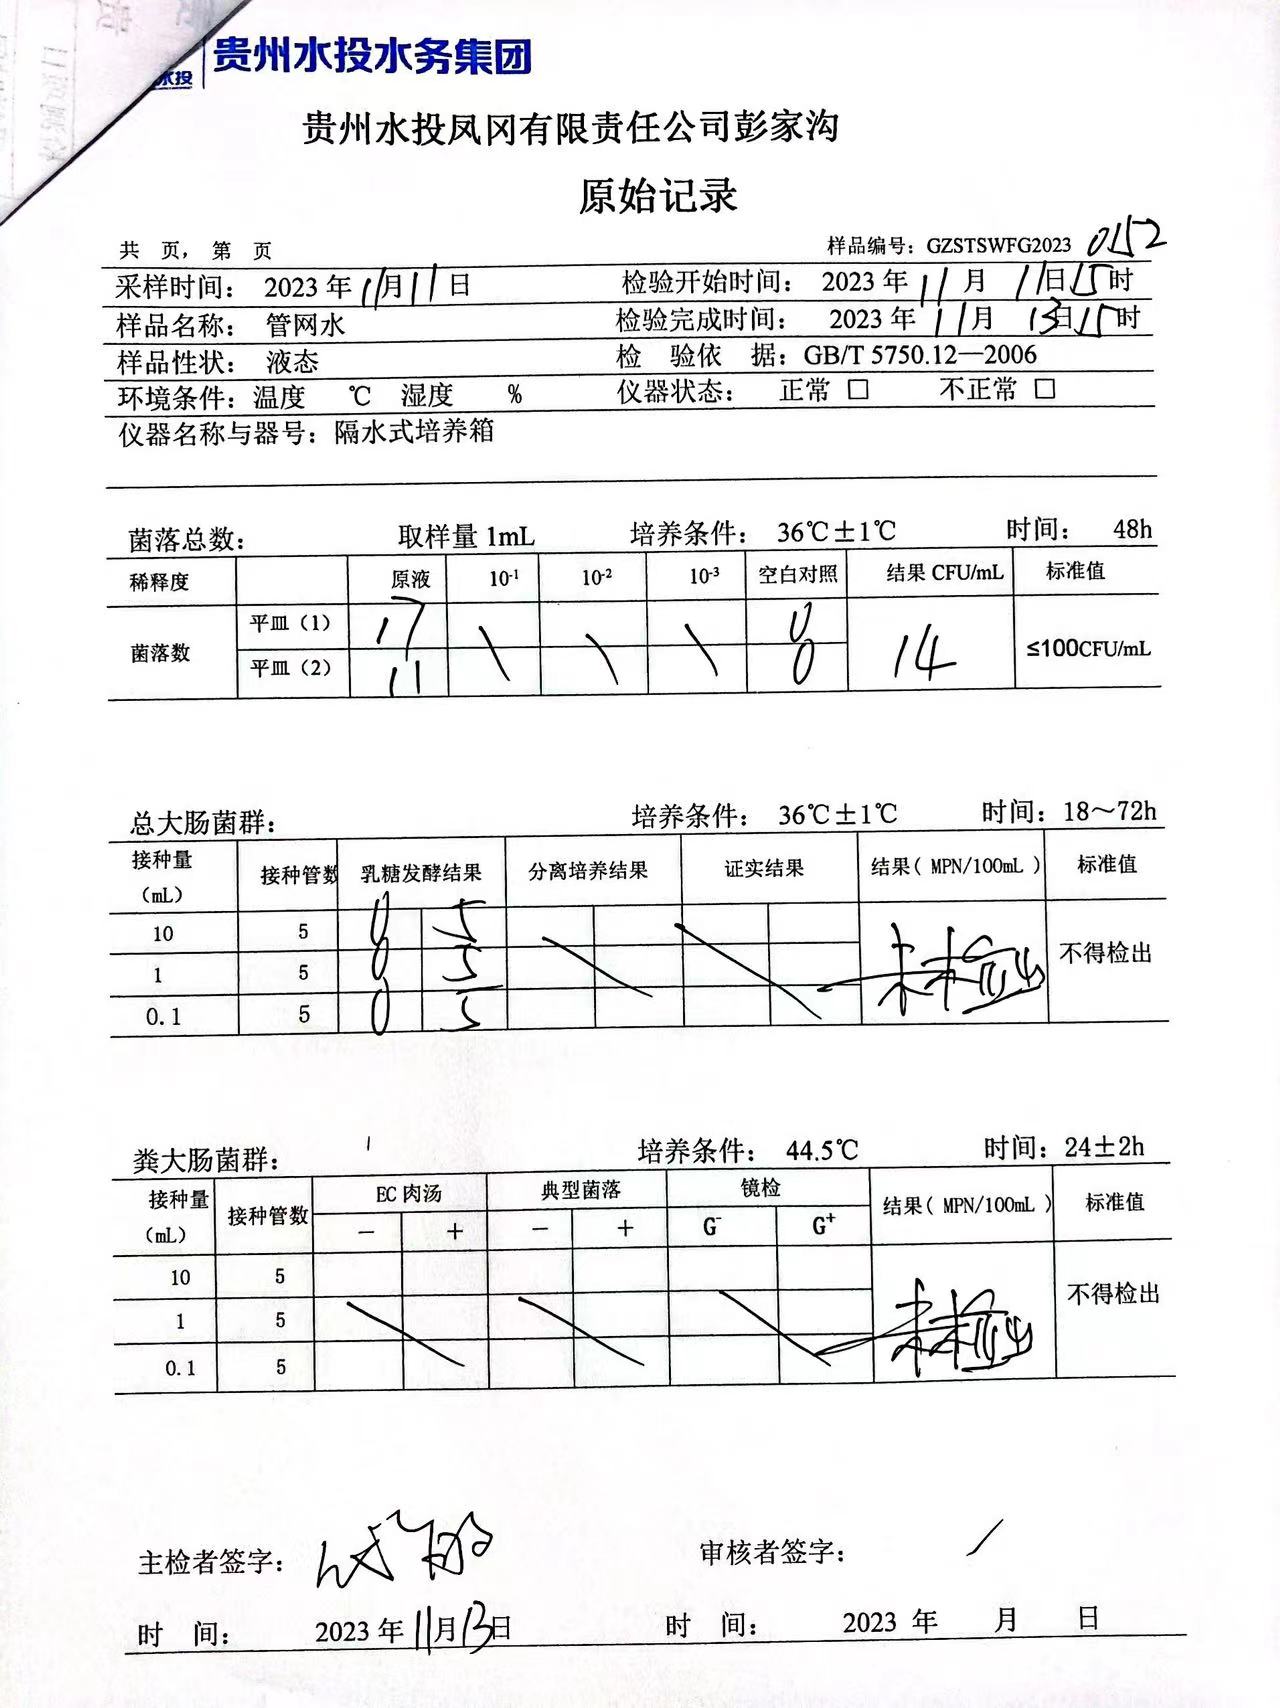 水投 贵州水投水务集团
贵州水投凤冈有限责任公司彭家沟
原始记录
共 页， 第 页 样品编号：GZSTSWFG2023 0152
采样时间： 2023 年 11 月 11 日 检验开始时间： 2023 年 11 月 11 日 15 时
样品名称： 管网水 检验完成时间： 2023 年 11 月 13 日 15 时
样品性状： 液态 检 验依 据：GB/T 5750.12—2006
环境条件：温度 ℃ 湿度 % 仪器状态： 正常 □ 不正常 □
仪器名称与器号：隔水式培养箱
菌落总数： 取样量 1mL 培养条件： 36℃±1℃ 时间： 48h
稀释度 原液 10-1 10-2 10-3 空白对照 结果 CFU/mL 标准值
菌落数 平皿（1） 17 \ \ \ 0 14 ≤100CFU/mL
平皿（2） 11 0
总大肠菌群： 培养条件： 36℃±1℃ 时间：18～72h
接种量（mL） 接种管数 乳糖发酵结果 分离培养结果 证实结果 结果（MPN/100mL） 标准值
10 5 0 5 未检出 不得检出
1 5 0 5
0.1 5 0 5
粪大肠菌群： 培养条件： 44.5℃ 时间：24±2h
接种量（mL） 接种管数 EC 肉汤 典型菌落 镜检 结果（MPN/100mL） 标准值
— + — + G- G+
10 5 未检出 不得检出
1 5
0.1 5
主检者签字： 审核者签字： /
时 间： 2023 年 11 月 13 日 时 间： 2023 年 月 日